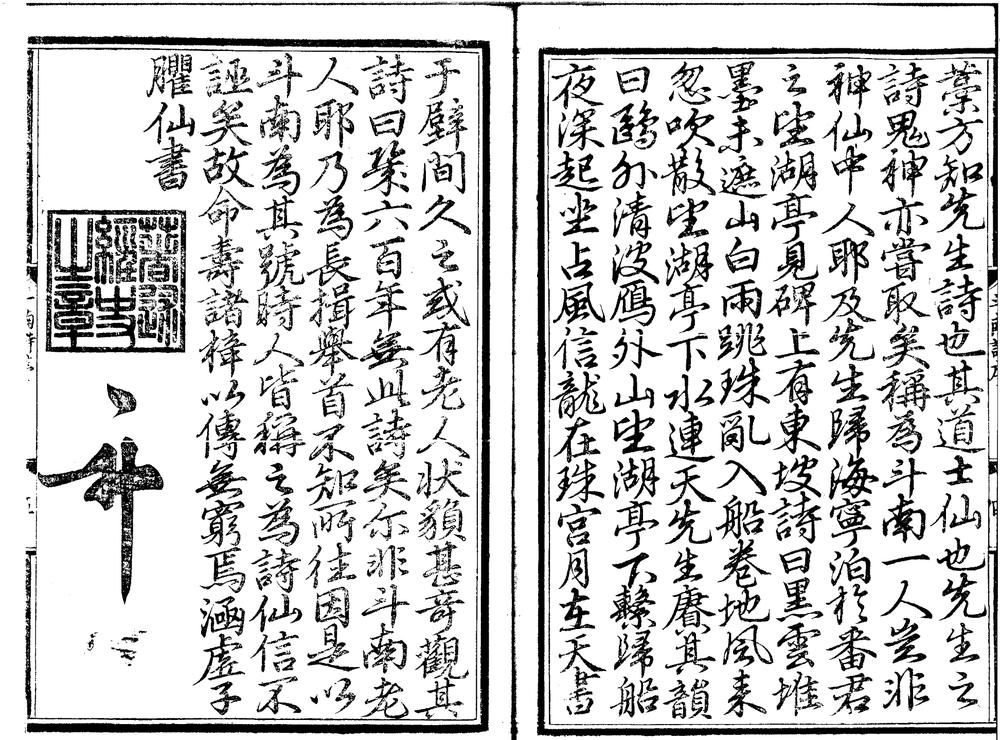 藁方知先生詩也其道士仙也先生之
詩鬼神亦嘗取矣稱為斗南一人豈非
神仙中人耶及先生歸海寧泊於番君
之望湖亭見碑上有東坡詩曰黑雲堆
墨未遮山白雨跳珠亂入船卷地風来
忽吹散望湖亭下水連天先生賡其韻
曰鷗外清波鴈外山望湖亭下繫歸船
夜深起坐占風信龍在珠宮月在天書
于壁間久之或有老人状貌甚奇觀其
詩曰第六百年無此詩矣尔非斗南老
人耶乃為長揖舉首不知所往因是以
斗南為其號時人皆稱之為詩仙信不
誣矣故命壽諸梓以傳無窮焉涵虚子
臞仙書